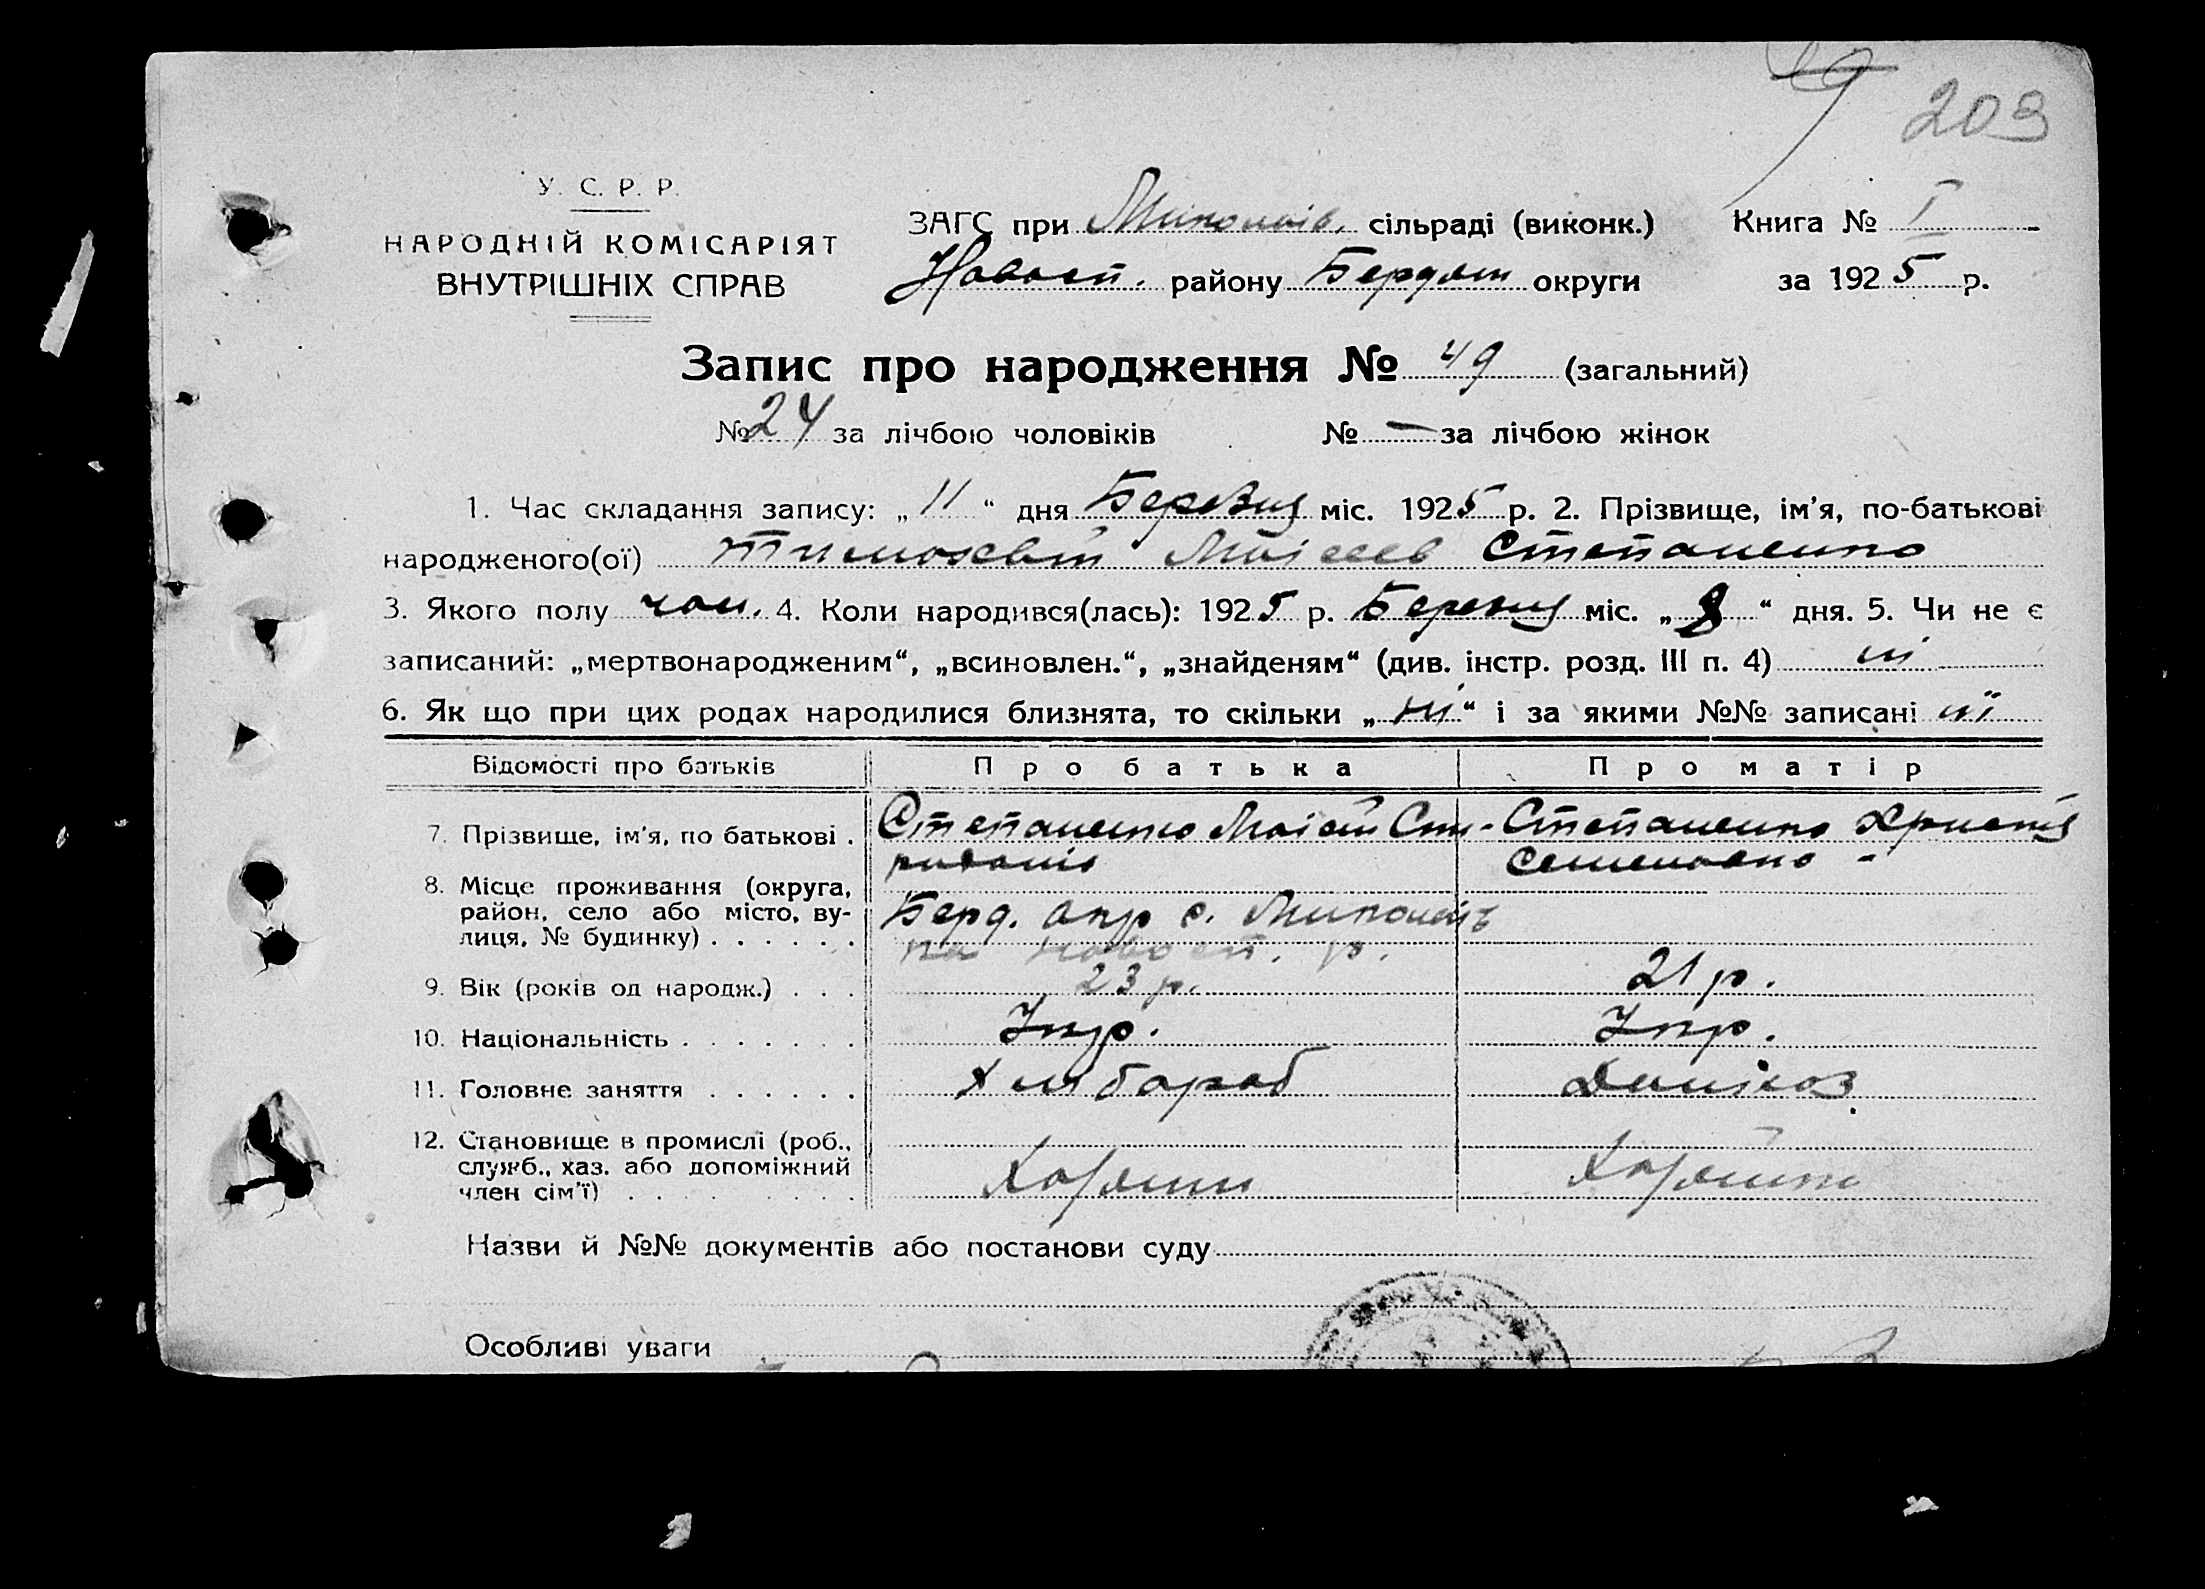 203
У. С. Р. Р.
ЗАГС при Миколаїв. сільраді (виконк.) Книга № I
НАРОДНІЙ КОМІСАРІЯТ
ВНУТРІШНІХ СПРАВ
Новосп. району Бердян округи за 1925 р.
Запис про народження № 49 (загальний)
№ 24 за лічбою чоловіків № — за лічбою жінок
1. Час складання запису: „11“ дня Березня міс. 1925 р. 2. Прізвище, ім'я, по-батькові
народженого(ої) Тимохвій Моісеев Степаненко
3. Якого полу чол. 4. Коли народився(лась): 1925 р. Березня міс. „8“ дня. 5. Чи не є
записаний: „мертвонародженим“, „всиновлен.“, „знайденям“ (див. інстр. розд. III п. 4) ні
6. Як що при цих родах народилися близнята, то скільки „ні“ і за якими №№ записані ні
Відомості про батьків Про батька Про матір
7. Прізвище, ім'я, по батькові . Степаненко Моісей Спи- Степаненко Христя
ридонів Семеновна -
8. Місце проживання (округа,
район, село або місто, ву-
лиця, № будинку) . . . . . . Берд. окр с. Миколаїв
ка Новосп. р.
9. Вік (років од народж.) . . . 23 р. 21 р.
10. Національність . . . . . . . Укр. Укр.
11. Головне заняття . . . . . . Хлібороб Домісоз.
12. Становище в промислі (роб.,
служб., хаз. або допоміжний
член сім'ї) . . . . . . . Хазяин Хазяйка
Назви й №№ документів або постанови суду
Особливі уваги